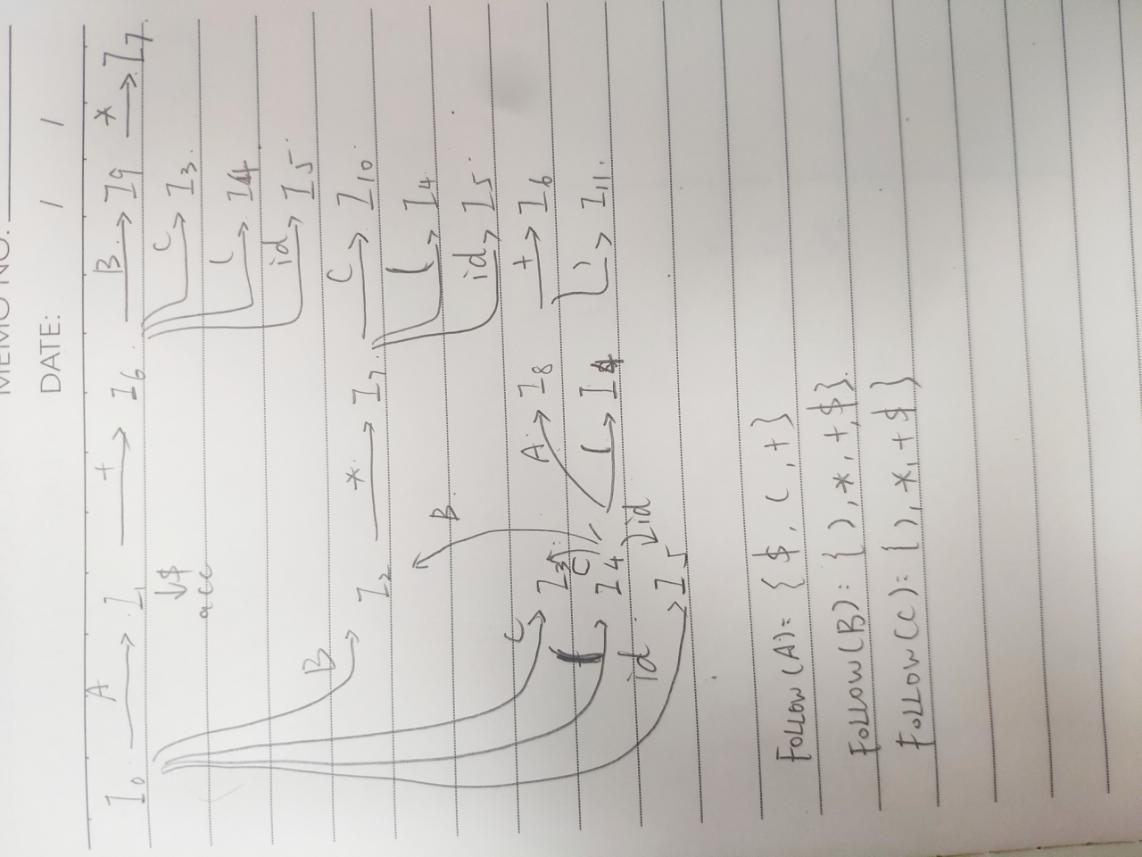 MEMO NO.
DATE: / /
I0 A → I1 + → I6 B → I9 * → I7
↓$ C → I3
acc ( → I4
id → I5
B → I2 * → I7 C → I10
( → I4
B id → I5
C → I3 A → I8 + → I6
( I4 ( → I4 ) → I11
C id
id → I5
FOLLOW(A): { $, (, + }
FOLLOW(B): { ), *, +, $ }.
FOLLOW(C): { ), *, + $ }